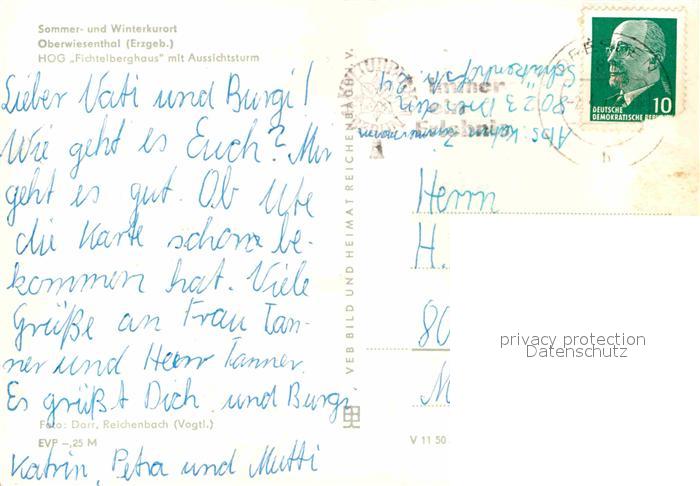 Sommer- und Winterkurort
Oberwiesenthal (Erzgeb.)
HOG „Fichtelberghaus" mit Aussichtsturm
Lieber Vati und Burgi!
Wie geht es Euch? Mir
geht es gut. Ob Ute
die Karte schon be-
kommen hat. Viele
Grüße an Frau Tan-
ner und Herr Tanner.
Es grüßt Dich und Burgi
Foto: Darr, Reichenbach (Vogtl.)
EVP –,25 M
Katrin, Petra und Mutti
VEB BILD UND HEIMAT REICHENBACH I. V.
V 11 50
Abs: Katrin
8023 Dresden
immer
DEUTSCHE
DEMOKRATISCHE REPUBLIK
10
Herrn
H.
80
M
privacy protection
Datenschutz